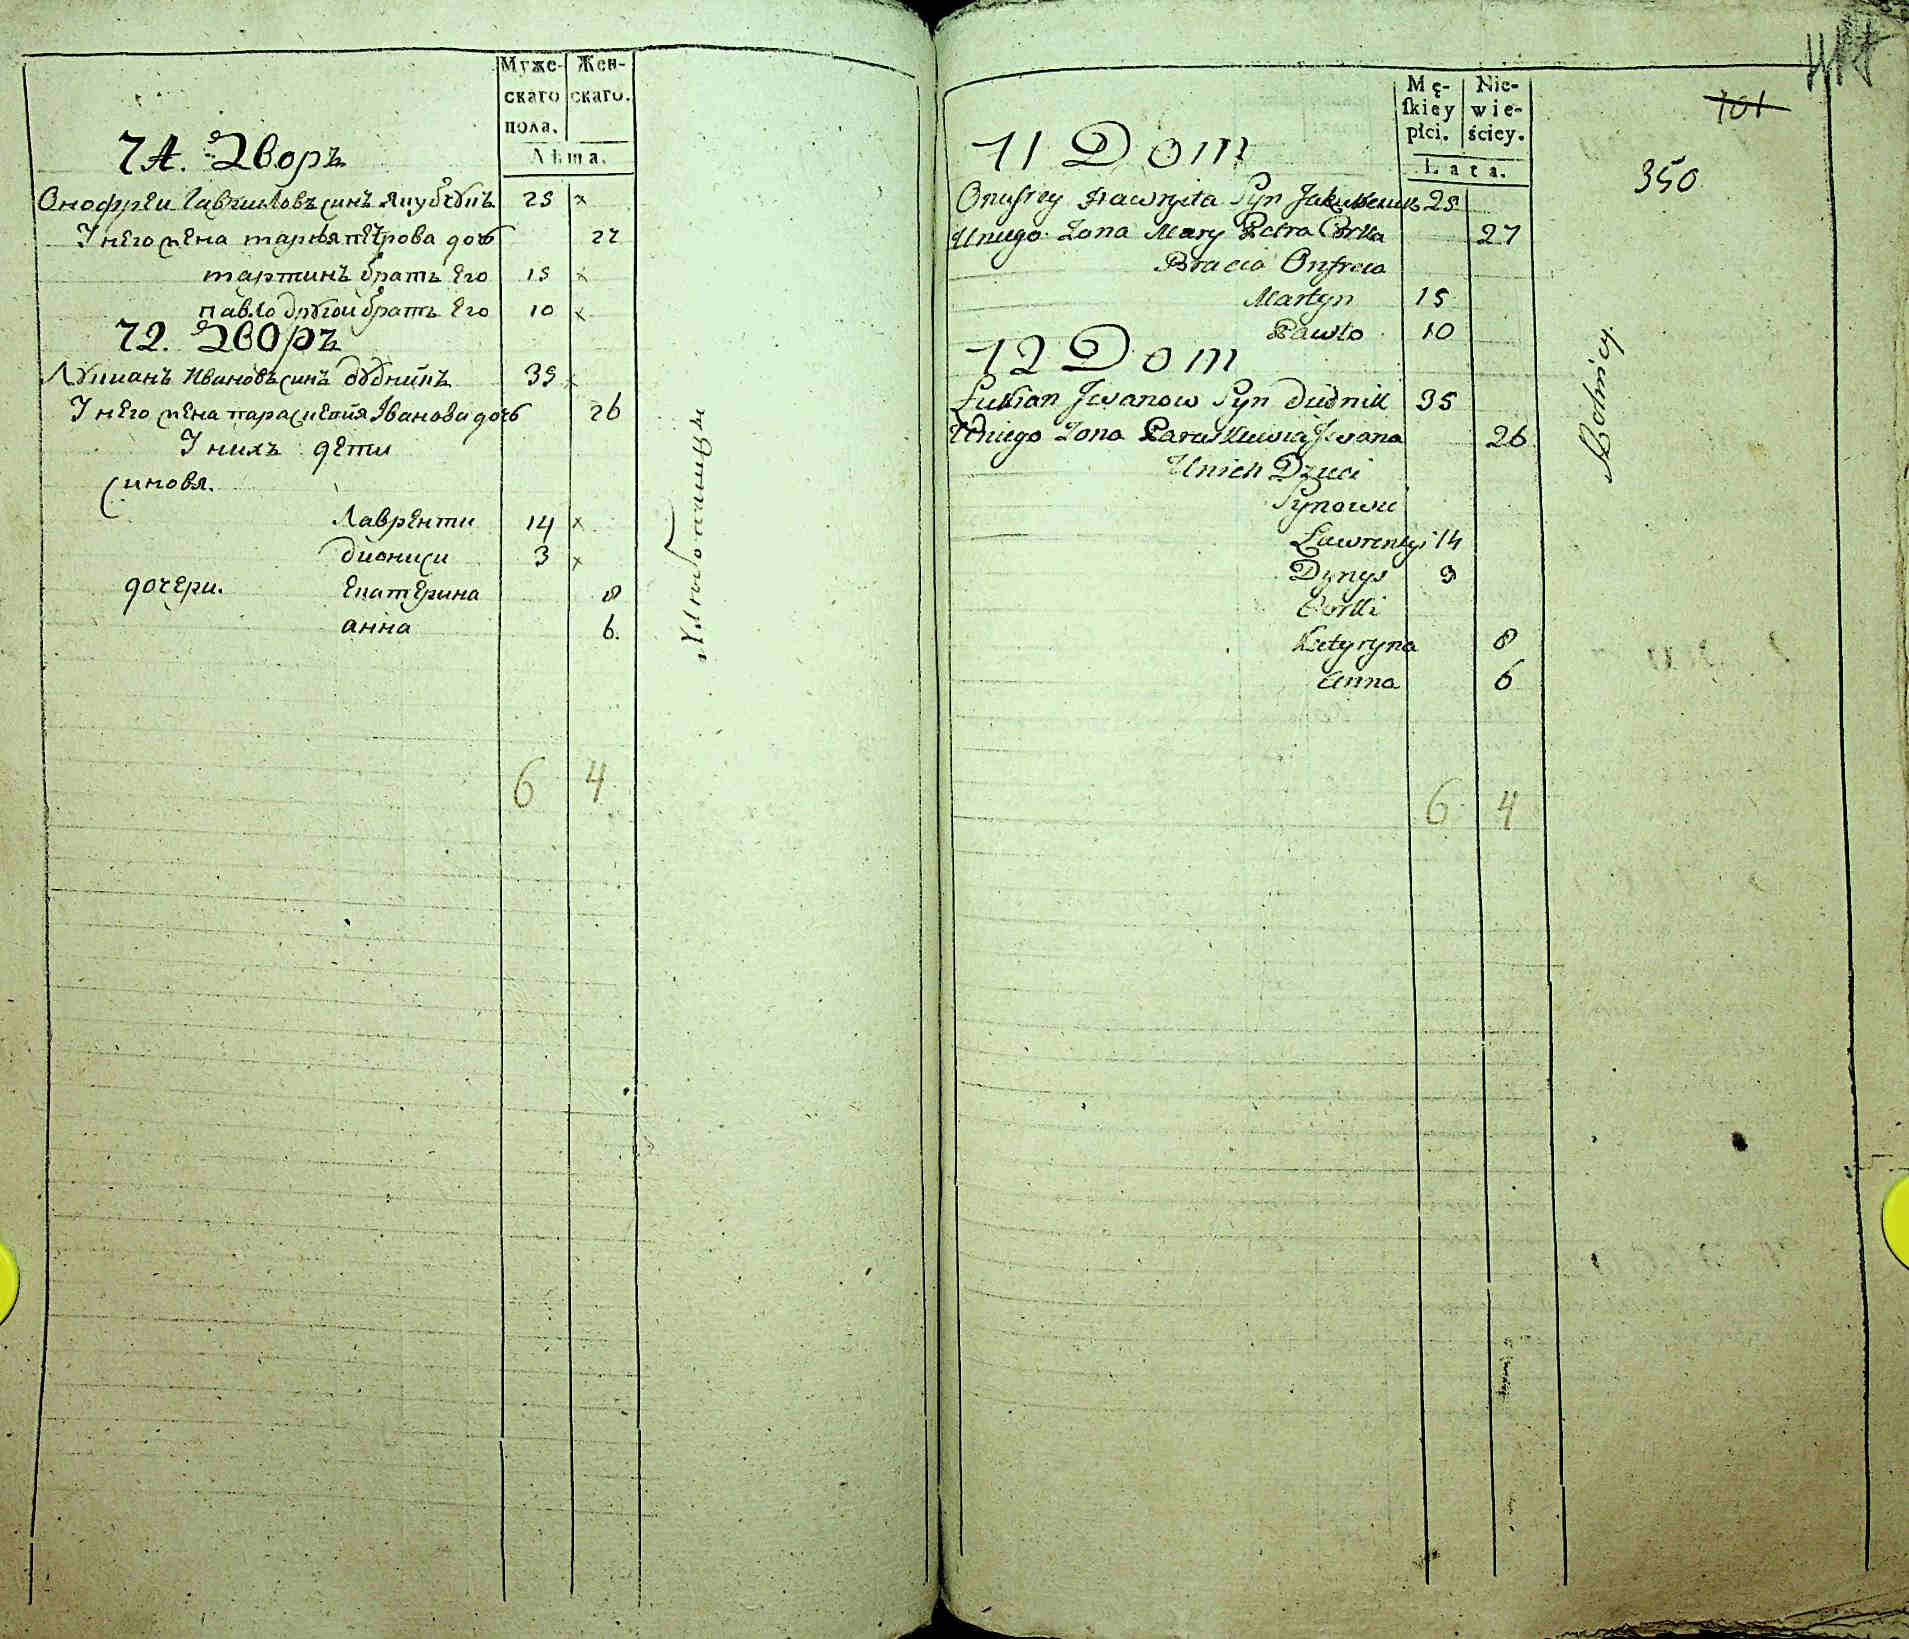 Муже-
скаго
пола.
Жен-
скаго.
Лѣта.
71. Дворъ
Онофреи Гавриловъ синъ Якубчукъ 25 x
У него жена марья петрова дочь 27
мартинъ братъ его 15 x
павло другои братъ его 10 x
72. Дворъ
Лукианъ Ивановъ синъ дудникъ 35 x
У него жена параскевия Іванова дочь 26
У нихъ дети
синовя.
Лавренти 14 x
диониси 3 x
дочери. Екатерина 8
анна 6.
Хлибопашцы
6 4
Mę-
ſkiey
płci.
Nie-
wie-
ściey.
Lata.
101
350
71 Dom
Onufrey Hawryła Syn Jakubczuk 25
Uniego Zona Mary Petra Corka 27
Bracia Onfreia
Martyn 15
Pawło 10
72 Dom
Łukian Jwanow Syn dudnik 35
Uniego Zona Paraskiewia Jwana 26
Unich Dzieci
Synowie
Ławrentyi 14
Dynys 3
Corki
Katyryna 8
Anna 6
Rolnicy
6 4